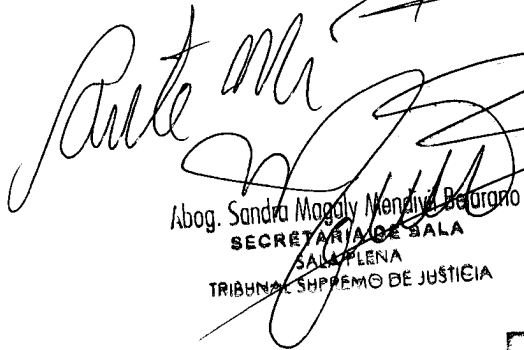 Ante mi
Abog. Sandra Magaly Mendivil Bejarano
SECRETARIA DE SALA
SALA PLENA
TRIBUNAL SUPREMO DE JUSTICIA